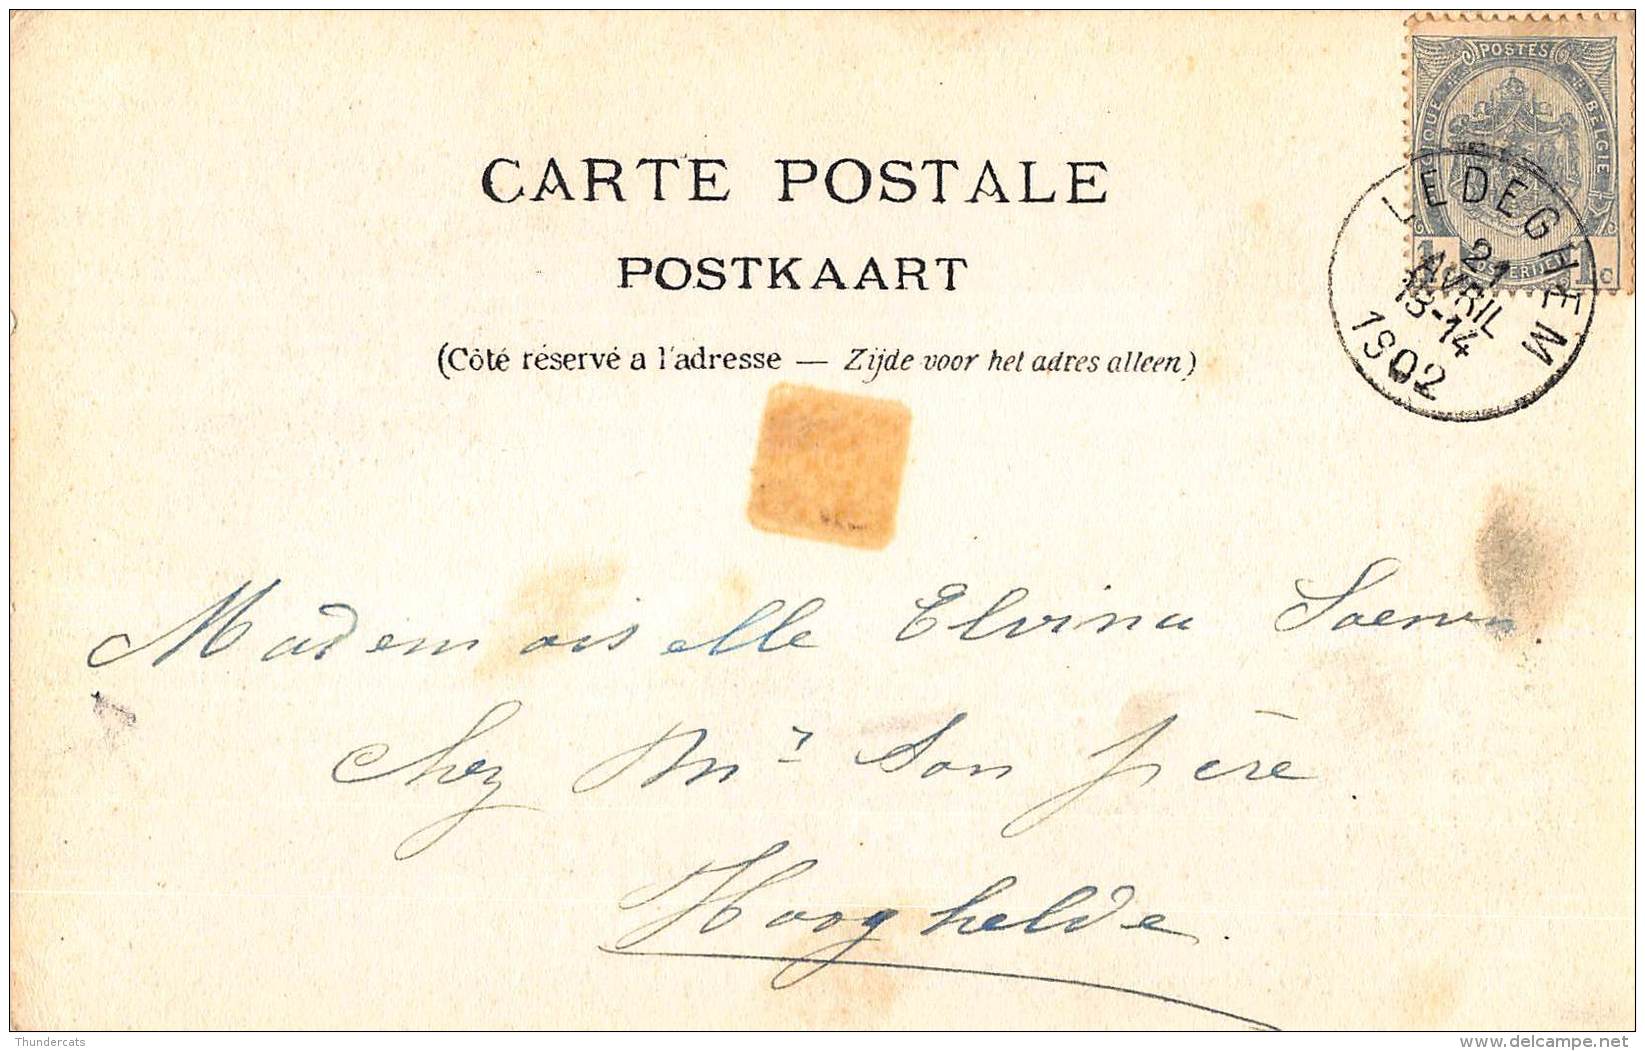 POSTES
BELGIQUE BELGIE
1 POSTERIJEN 1c
LEDEGHEM
21
AVRIL
13-14
1902
CARTE POSTALE
POSTKAART
(Côté réservé a l'adresse — Zijde voor het adres alleen)
Mademoiselle Elvina
chez Mr Son frère
Hooghelde.
Thundercats
delcampe.net